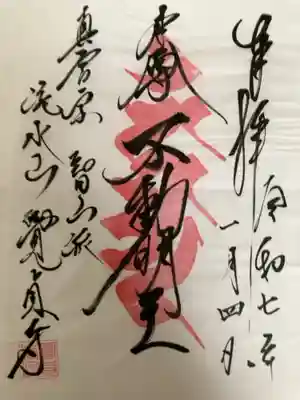 奉拝 令和七年
一月四日
本尊 不動明王
真言宗 智山派
水山